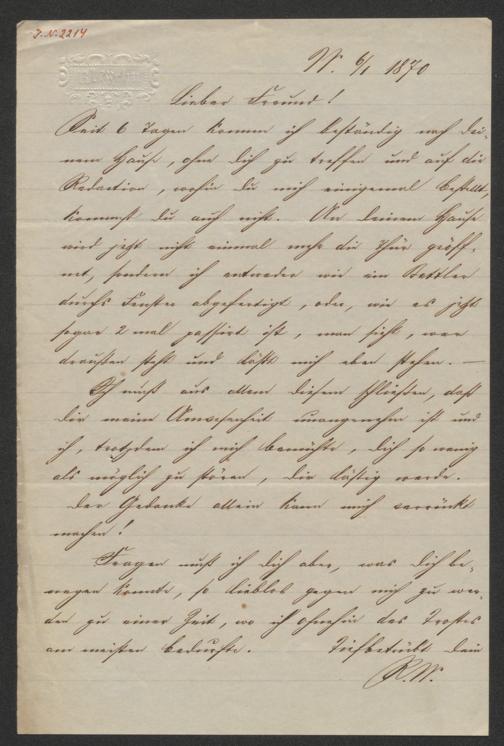 J.N. 2214
W. 6/1 1870
Lieber Freund!
Seit 6 Tagen komme ich beständig nach Dei-
nem Hause, ohne Dich zu treffen und auf die
Redaction, wohin Du mich einigemal bestellt,
kommst Du auch nicht. An Deinem Hause
wird jetzt nicht einmal mehr die Thür geöff-
net, sondern ich entweder wie ein Bettler
durchs Fenster abgefertigt, oder, wie es jetzt
sogar 2 mal passirt ist, man sieht, wer
draußen steht und läßt mich eben stehen. —
Ich muß aus allem diesem schließen, daß
Dir meine Anwesenheit unangenehm ist und
ich, trotzdem ich mich bemühte, Dich so wenig
als möglich zu stören, Dir lästig werde.
Der Gedanke allein kann mich verrückt
machen!
Fragen muß ich Dich aber, was Dich be-
wegen konnte, so lieblos gegen mich zu wer-
den zu einer Zeit, wo ich ohnehin des Trostes
am meisten bedurfte. Tiefbetrübt Dein
R.W.